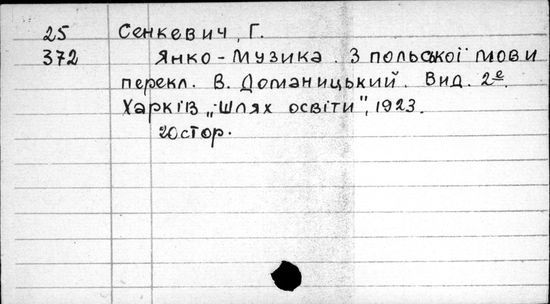 25 Сенкевич, Г.
372 Янко-Музика. З польської мови
перекл. В. Доманицький. Вид. 2е.
Харків „Шлях освіти”, 1923.
20 стор.